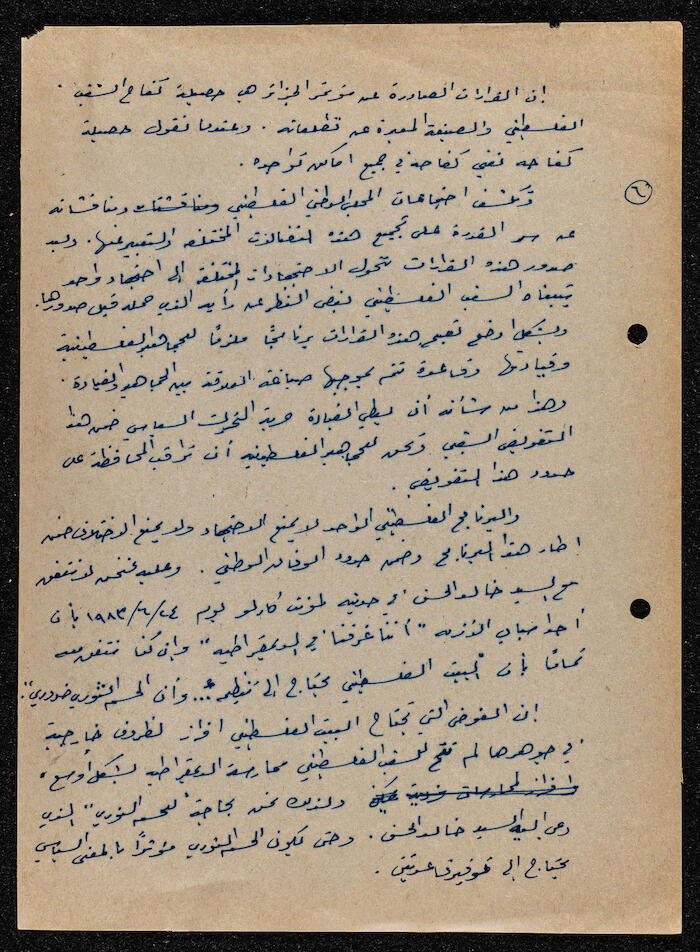 ان القرارات الصادرة عن مؤتمر الجزائر هي حصيلة كفاح الشعب
الفلسطيني والصيغة المعبرة عن تطلعاته . وعندما نقول حصيلة
كفاحه نعني كفاحه في جميع اماكن تواجده .
٦
وتكشف اجتماعات المجلس الوطني الفلسطيني ومناقشاته
عن سر القدرة على تجميع هذه النضالات المختلفة والتعبير عنها . وبعد
صدور هذه القرارات تتحول الاجتهادات المختلفة الى اجتهاد واحد
يتبناه الشعب الفلسطيني بغض النظر عن الرأي الذي حمله قبل صدورها .
وبشكل اوضح تصبح هذه القرارات برنامجًا ملزمًا للجماهير الفلسطينية
وقيادتها وقاعدة تتم بموجبها صياغة العلاقة بين الجماهير والقيادة .
وهذا من شأنه أن يعطي القيادة حرية التحرك السياسي ضمن هذا
التفويض الشعبي ويحق للجماهير الفلسطينية أن تراقب المحافظة على
حدود هذا التفويض .
والبرنامج الفلسطيني الواحد لا يمنع الاجتهاد ولا يمنع الاختلاف ضمن
اطار هذا البرنامج وضمن حدود الوفاق الوطني . وعليه فنحن لا نتفق
مع السيد خالد الحسن في حديثه لمونت كارلو يوم ٢٤/٦/١٩٨٣ بأن
أحد اسباب الأزمة "أننا غرقنا في الديمقراطية" وإن كنا نتفق معه
تمامًا بأن "البيت الفلسطيني يحتاج إلى تنظيم ... وأن الحسم الثوري ضروري".
إن الفوضى التي تجتاح البيت الفلسطيني افراز لظروف خارجية
في جوهرها لم تتح للشعب الفلسطيني ممارسة الديمقراطية بشكل أوسع ،
ولذلك نحن بحاجة "للحسم الثوري" الذي
دعى اليه السيد خالد الحسن . وحتى يكون الحسم الثوري مؤثرًا بالمعنى السياسي
يحتاج إلى توفير قاعدتين .